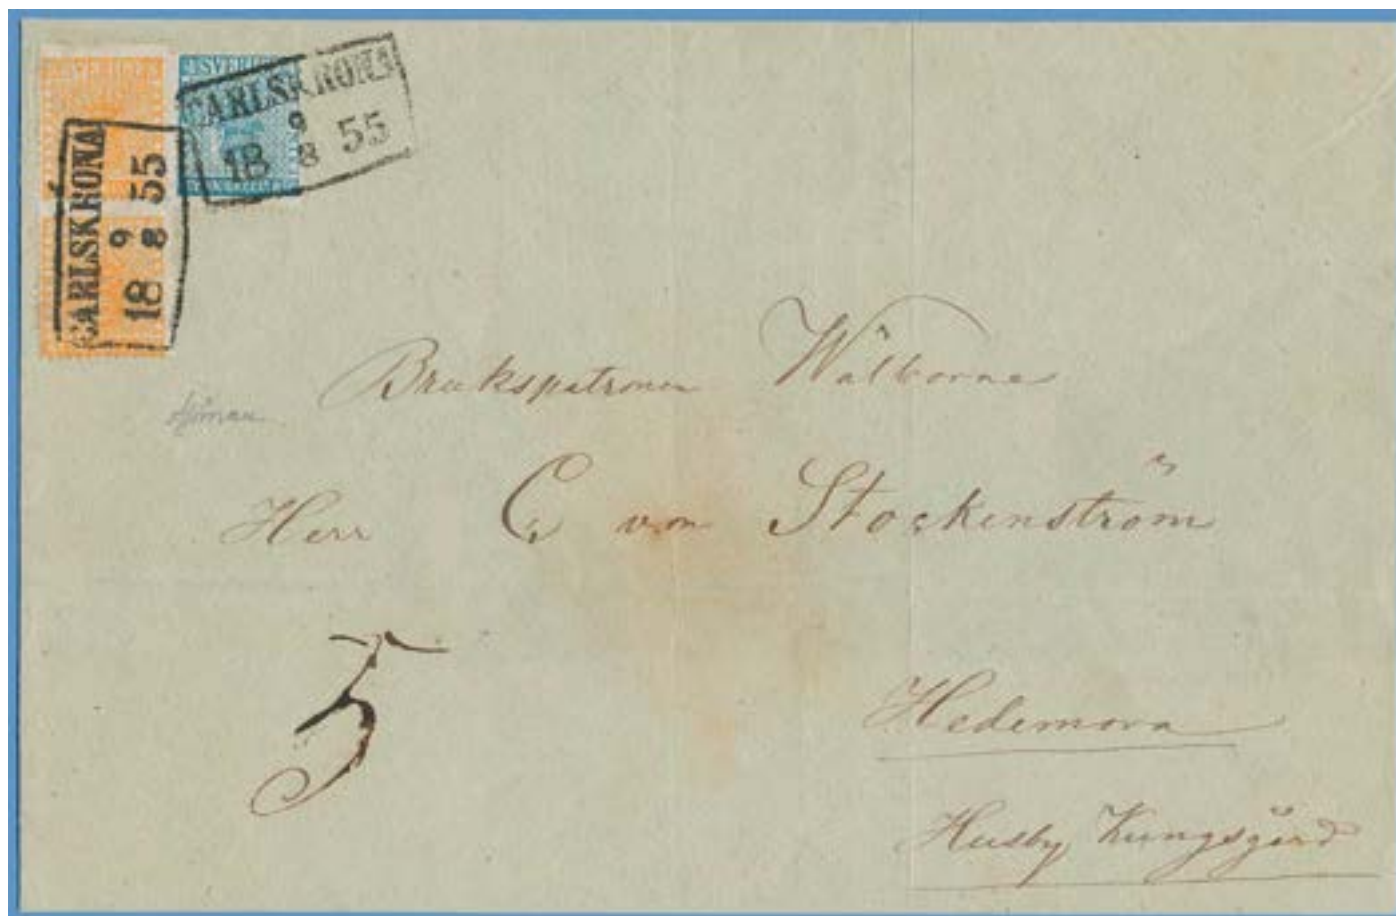 SVERIGE
CARLSKRONA
9
18 8 55
CARLSKRONA
9
18 8 55
Brukspatronen Wälborne
Herr C von Stockenström
5
Hedemora
Husby Kungsgård